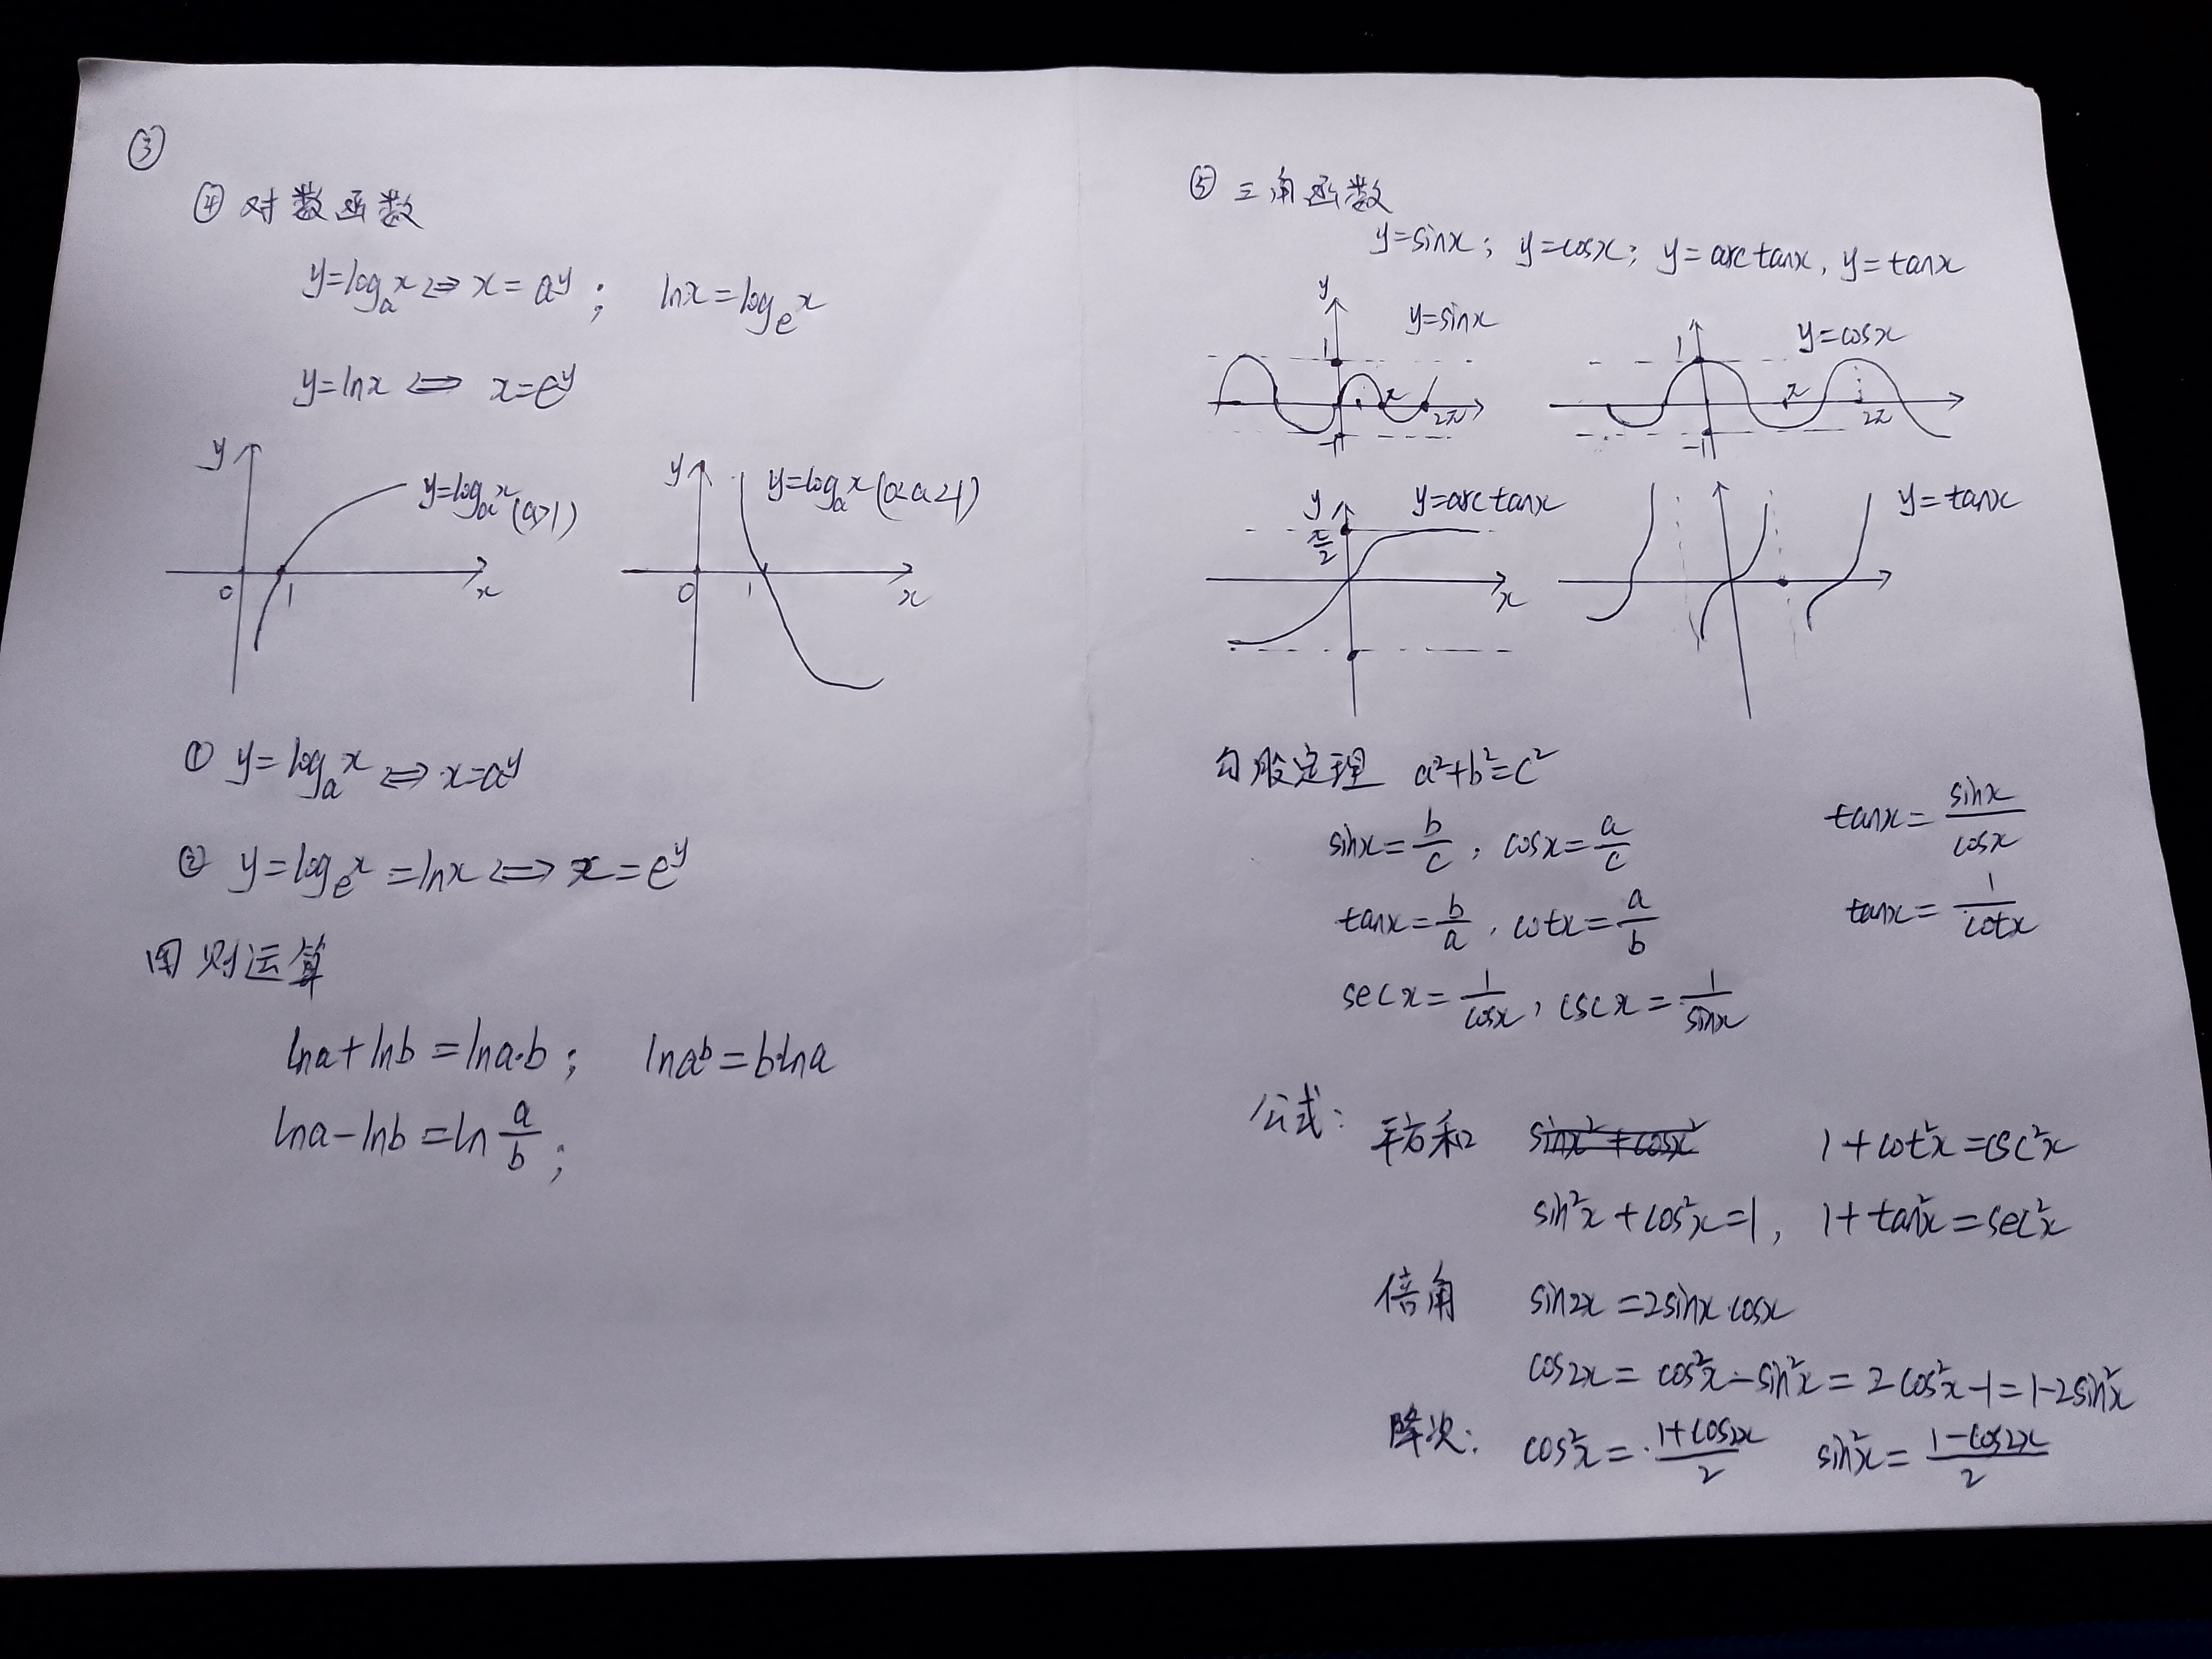 ③
④ 对数函数
y=logₐx ⇔ x=a^y ; lnx=logₑx
y=lnx ⇔ x=e^y
y
y=logₐx (a>1)
0 1 x
y
y=logₐx (0<a<1)
0 1 x
① y=logₐx ⇔ x=a^y
② y=logₑx =lnx ⇔ x=e^y
四则运算
lna+lnb=lna·b ; lna^b=blna
lna-lnb=ln a/b ;
⑤ 三角函数
y=sinx ; y=cosx ; y=arctanx , y=tanx
y
y=sinx
1 π 2π
-1
y=cosx
1 π 2π
-1
y
y=arctanx
π/2
x
y=tanx
勾股定理 a²+b²=c²
sinx=b/c , cosx=a/c
tanx=sinx/cosx
tanx=b/a , cotx=a/b
tanx=1/cotx
secx=1/cosx , cscx=1/sinx
公式: 平方和 sinx²+cosx² 1+cot²x=csc²x
sin²x+cos²x=1 , 1+tan²x=sec²x
倍角 sin2x=2sinx·cosx
cos2x=cos²x-sin²x=2cos²x-1=1-2sin²x
降次: cos²x=1+cos2x/2 sin²x=1-cos2x/2